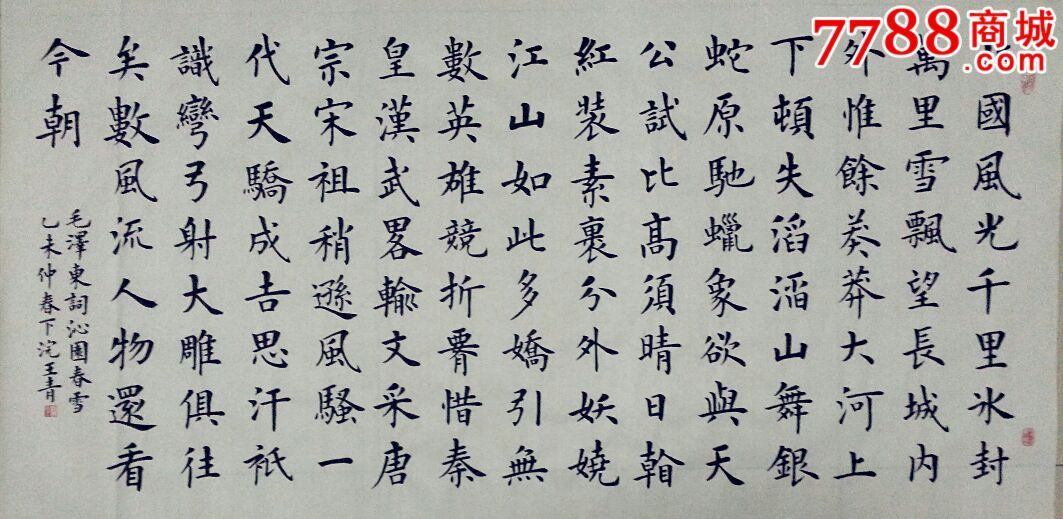 7788商城
.com
國風光千里冰封
萬里雪飄望長城内
外惟餘莽莽大河上
下頓失滔滔山舞銀
蛇原馳蠟象欲與天
公試比高須晴日
紅裝素裹分外妖嬈
江山如此多嬌引無
數英雄競折惜秦
皇漢武畧輸文采唐
宗宋祖稍遜風騷一
代天驕成吉思汗衹
識彎弓射大雕俱往
矣數風流人物還看
今朝
毛澤東詞沁園春雪
乙未仲春下浣王青